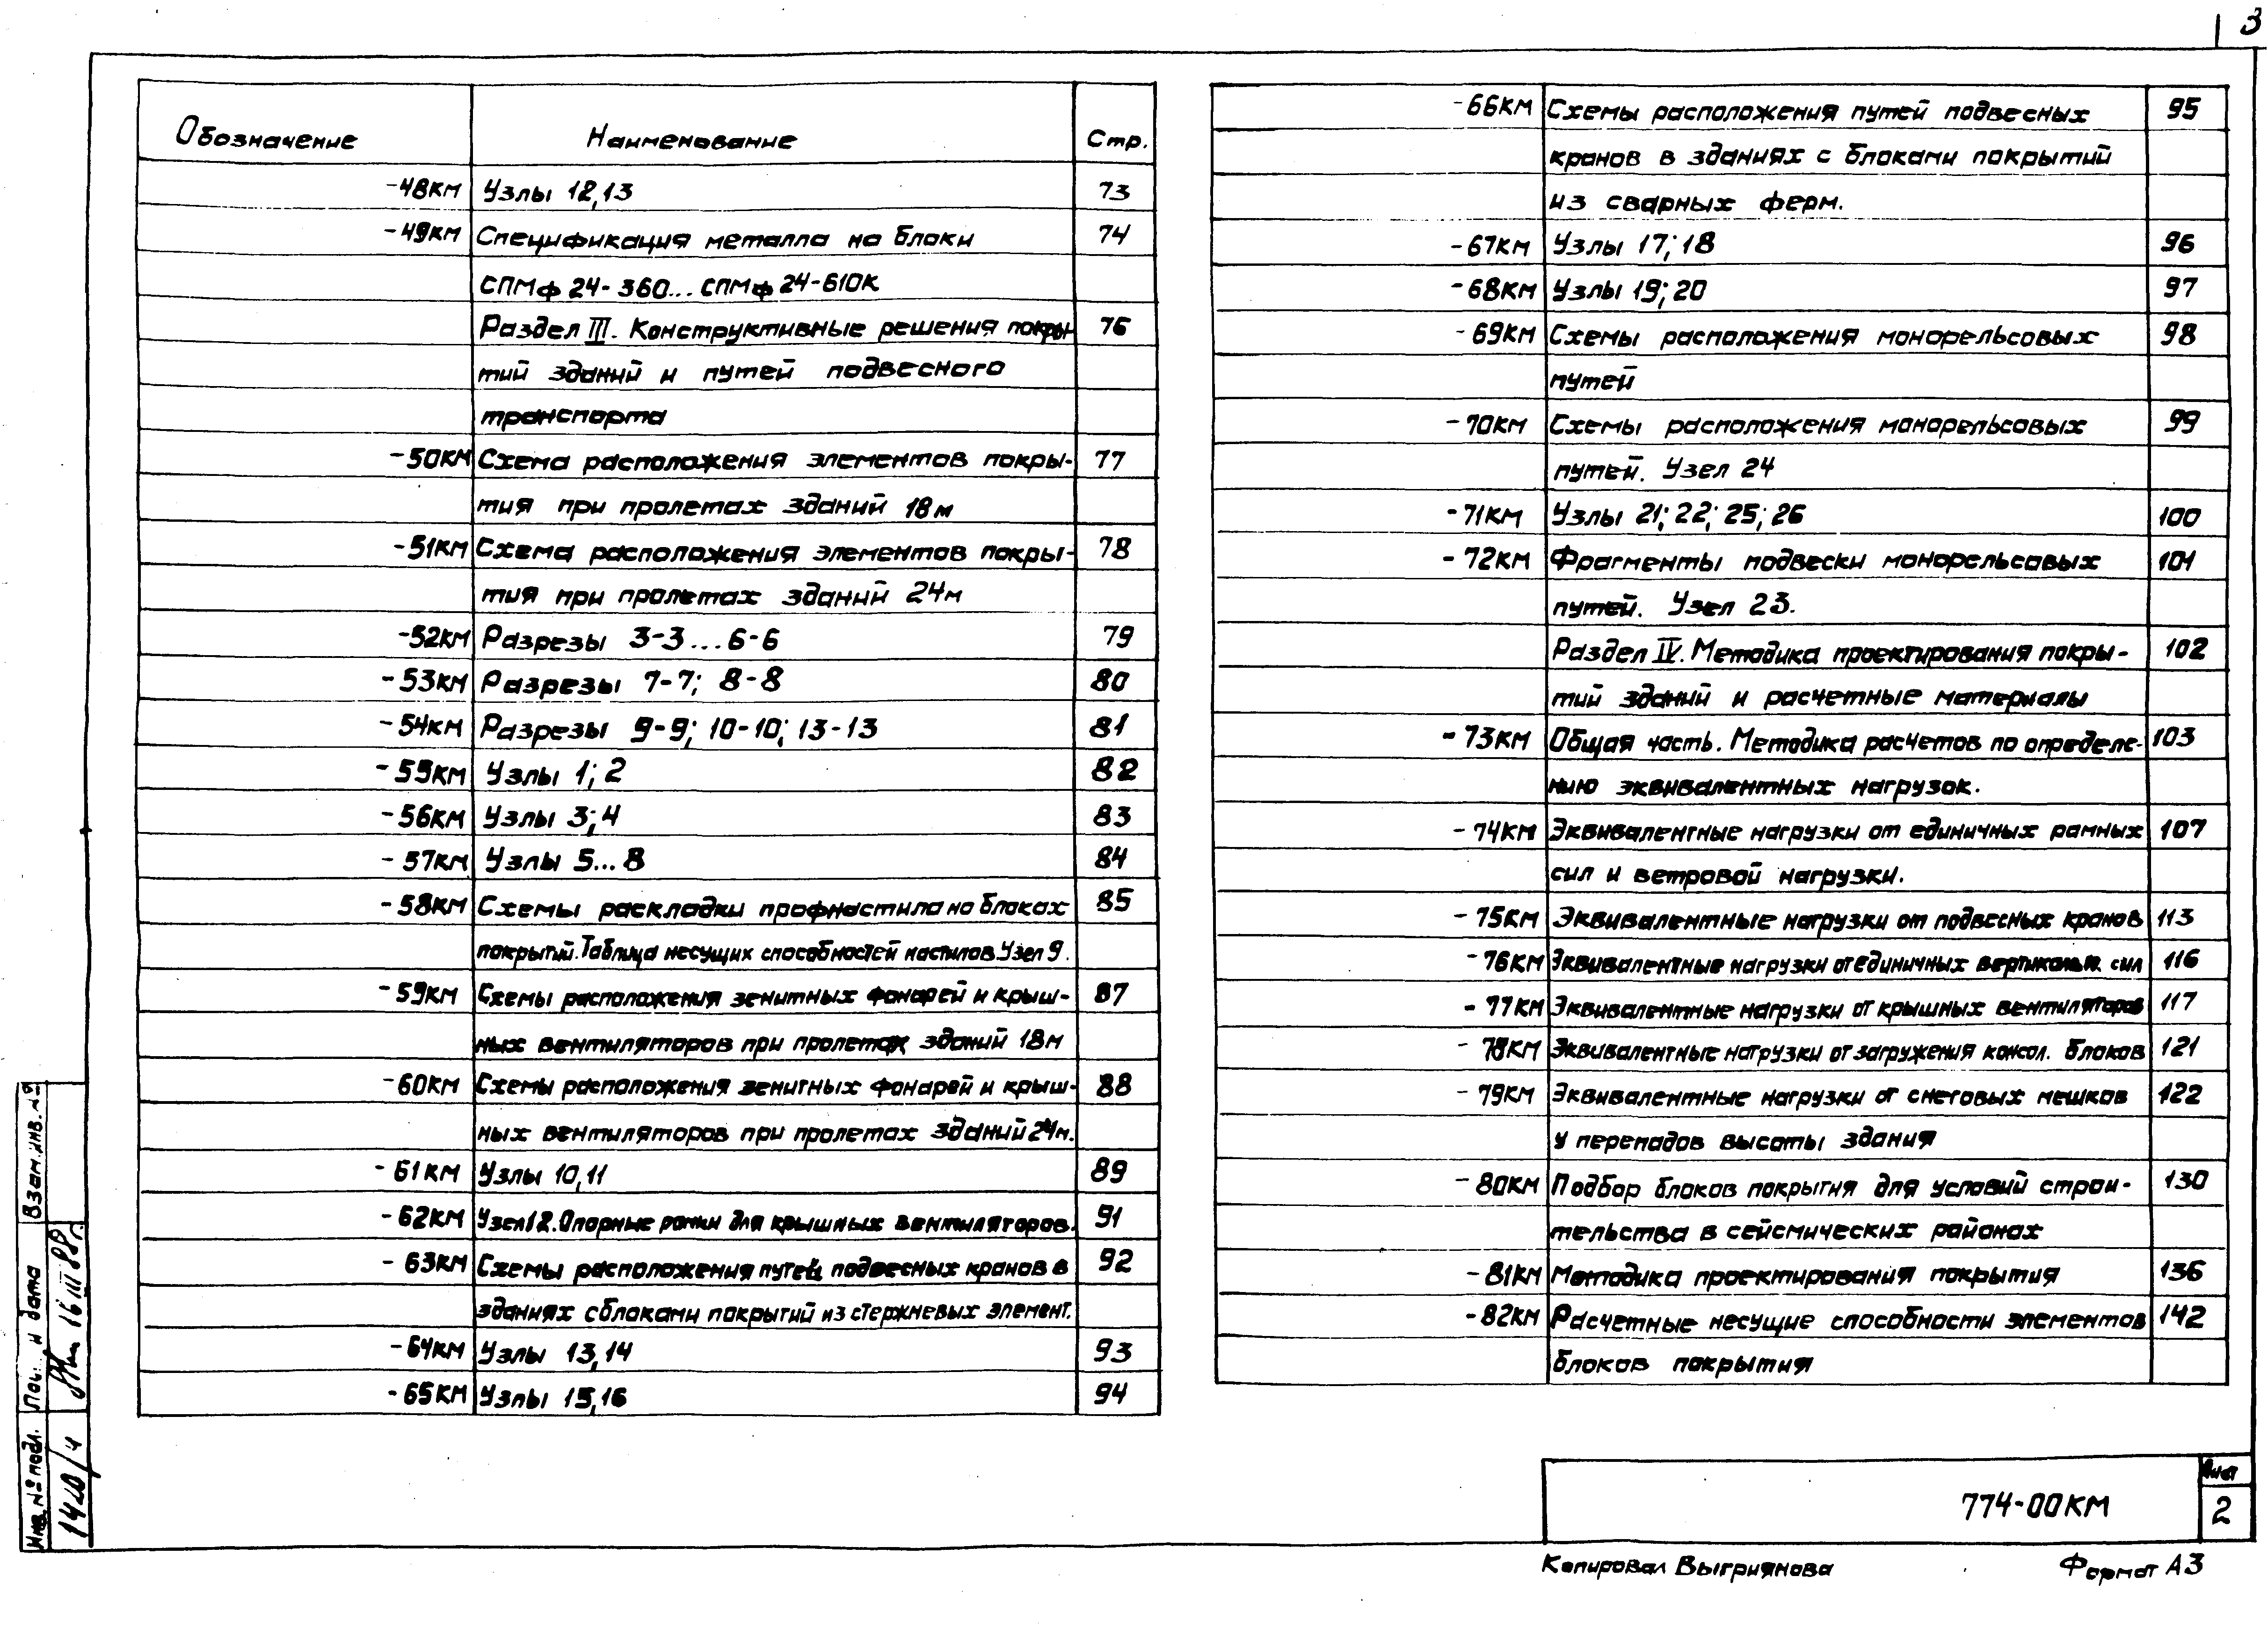 3
Обозначение Наименование Стр.
-48КМ Узлы 12,13 73
-49КМ Спецификация металла на блоки 74
СПМф 24-360...СПМф 24-610К
Раздел III. Конструктивные решения покры- 76
тий зданий и путей подвесного
транспорта
-50КМ Схема расположения элементов покры- 77
тия при пролетах зданий 18м
-51КМ Схема расположения элементов покры- 78
тия при пролетах зданий 24м
-52КМ Разрезы 3-3...6-6 79
-53КМ Разрезы 7-7; 8-8 80
-54КМ Разрезы 9-9; 10-10; 13-13 81
-55КМ Узлы 1; 2 82
-56КМ Узлы 3; 4 83
-57КМ Узлы 5...8 84
-58КМ Схемы раскладки профнастила на блоках 85
покрытий. Таблица несущих способностей настилов. Узел 9.
-59КМ Схемы расположения зенитных фонарей и крыш- 87
ных вентиляторов при пролетах зданий 18м
-60КМ Схемы расположения зенитных фонарей и крыш- 88
ных вентиляторов при пролетах зданий 24м.
-61КМ Узлы 10,11 89
-62КМ Узел 12. Опорные рамки для крышных вентиляторов. 91
-63КМ Схемы расположения путей подвесных кранов в 92
зданиях с блоками покрытий из стержневых элемент.
-64КМ Узлы 13,14 93
-65КМ Узлы 15,16 94
-66КМ Схемы расположения путей подвесных 95
кранов в зданиях с блоками покрытий
из сварных ферм.
-67КМ Узлы 17; 18 96
-68КМ Узлы 19; 20 97
-69КМ Схемы расположения монорельсовых 98
путей
-70КМ Схемы расположения монорельсовых 99
путей. Узел 24
-71КМ Узлы 21; 22; 25; 26 100
-72КМ Фрагменты подвески монорельсовых 101
путей. Узел 23.
Раздел IV. Методика проектирования покры- 102
тий зданий и расчетные материалы
-73КМ Общая часть. Методика расчетов по определе- 103
нию эквивалентных нагрузок.
-74КМ Эквивалентные нагрузки от единичных рамных 107
сил и ветровой нагрузки.
-75КМ Эквивалентные нагрузки от подвесных кранов 113
-76КМ Эквивалентные нагрузки от единичных вертикальн. сил 116
-77КМ Эквивалентные нагрузки от крышных вентиляторов 117
-78КМ Эквивалентные нагрузки от загружения консол. блоков 121
-79КМ Эквивалентные нагрузки от снеговых мешков 122
у перепадов высоты здания
-80КМ Подбор блоков покрытия для условий строи- 130
тельства в сейсмических районах
-81КМ Методика проектирования покрытия 136
-82КМ Расчетные несущие способности элементов 142
блоков покрытия
774-00КМ
Лист
2
Копировал Выгриянова Формат А3
Взам.инв.№
и дата 16 III 88г.
Инв.№подл. 1420/4